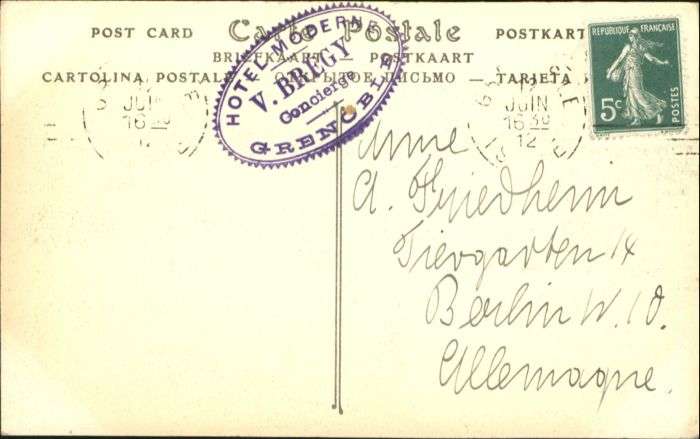 POST CARD Carte Postale POSTKART
BRIEFKAART — POSTKAART
CARTOLINA POSTALE ПИСЬМО — TARJETA
HOTEL MODERNE
V. BREGY
Concierge
GRENOBLE
JUIN
16 30
12
JUIN
16 30
12
REPUBLIQUE FRANÇAISE
5c
POSTES
A. Friedheim
Tiergarten 14
Berlin W. 10.
Allemagne.